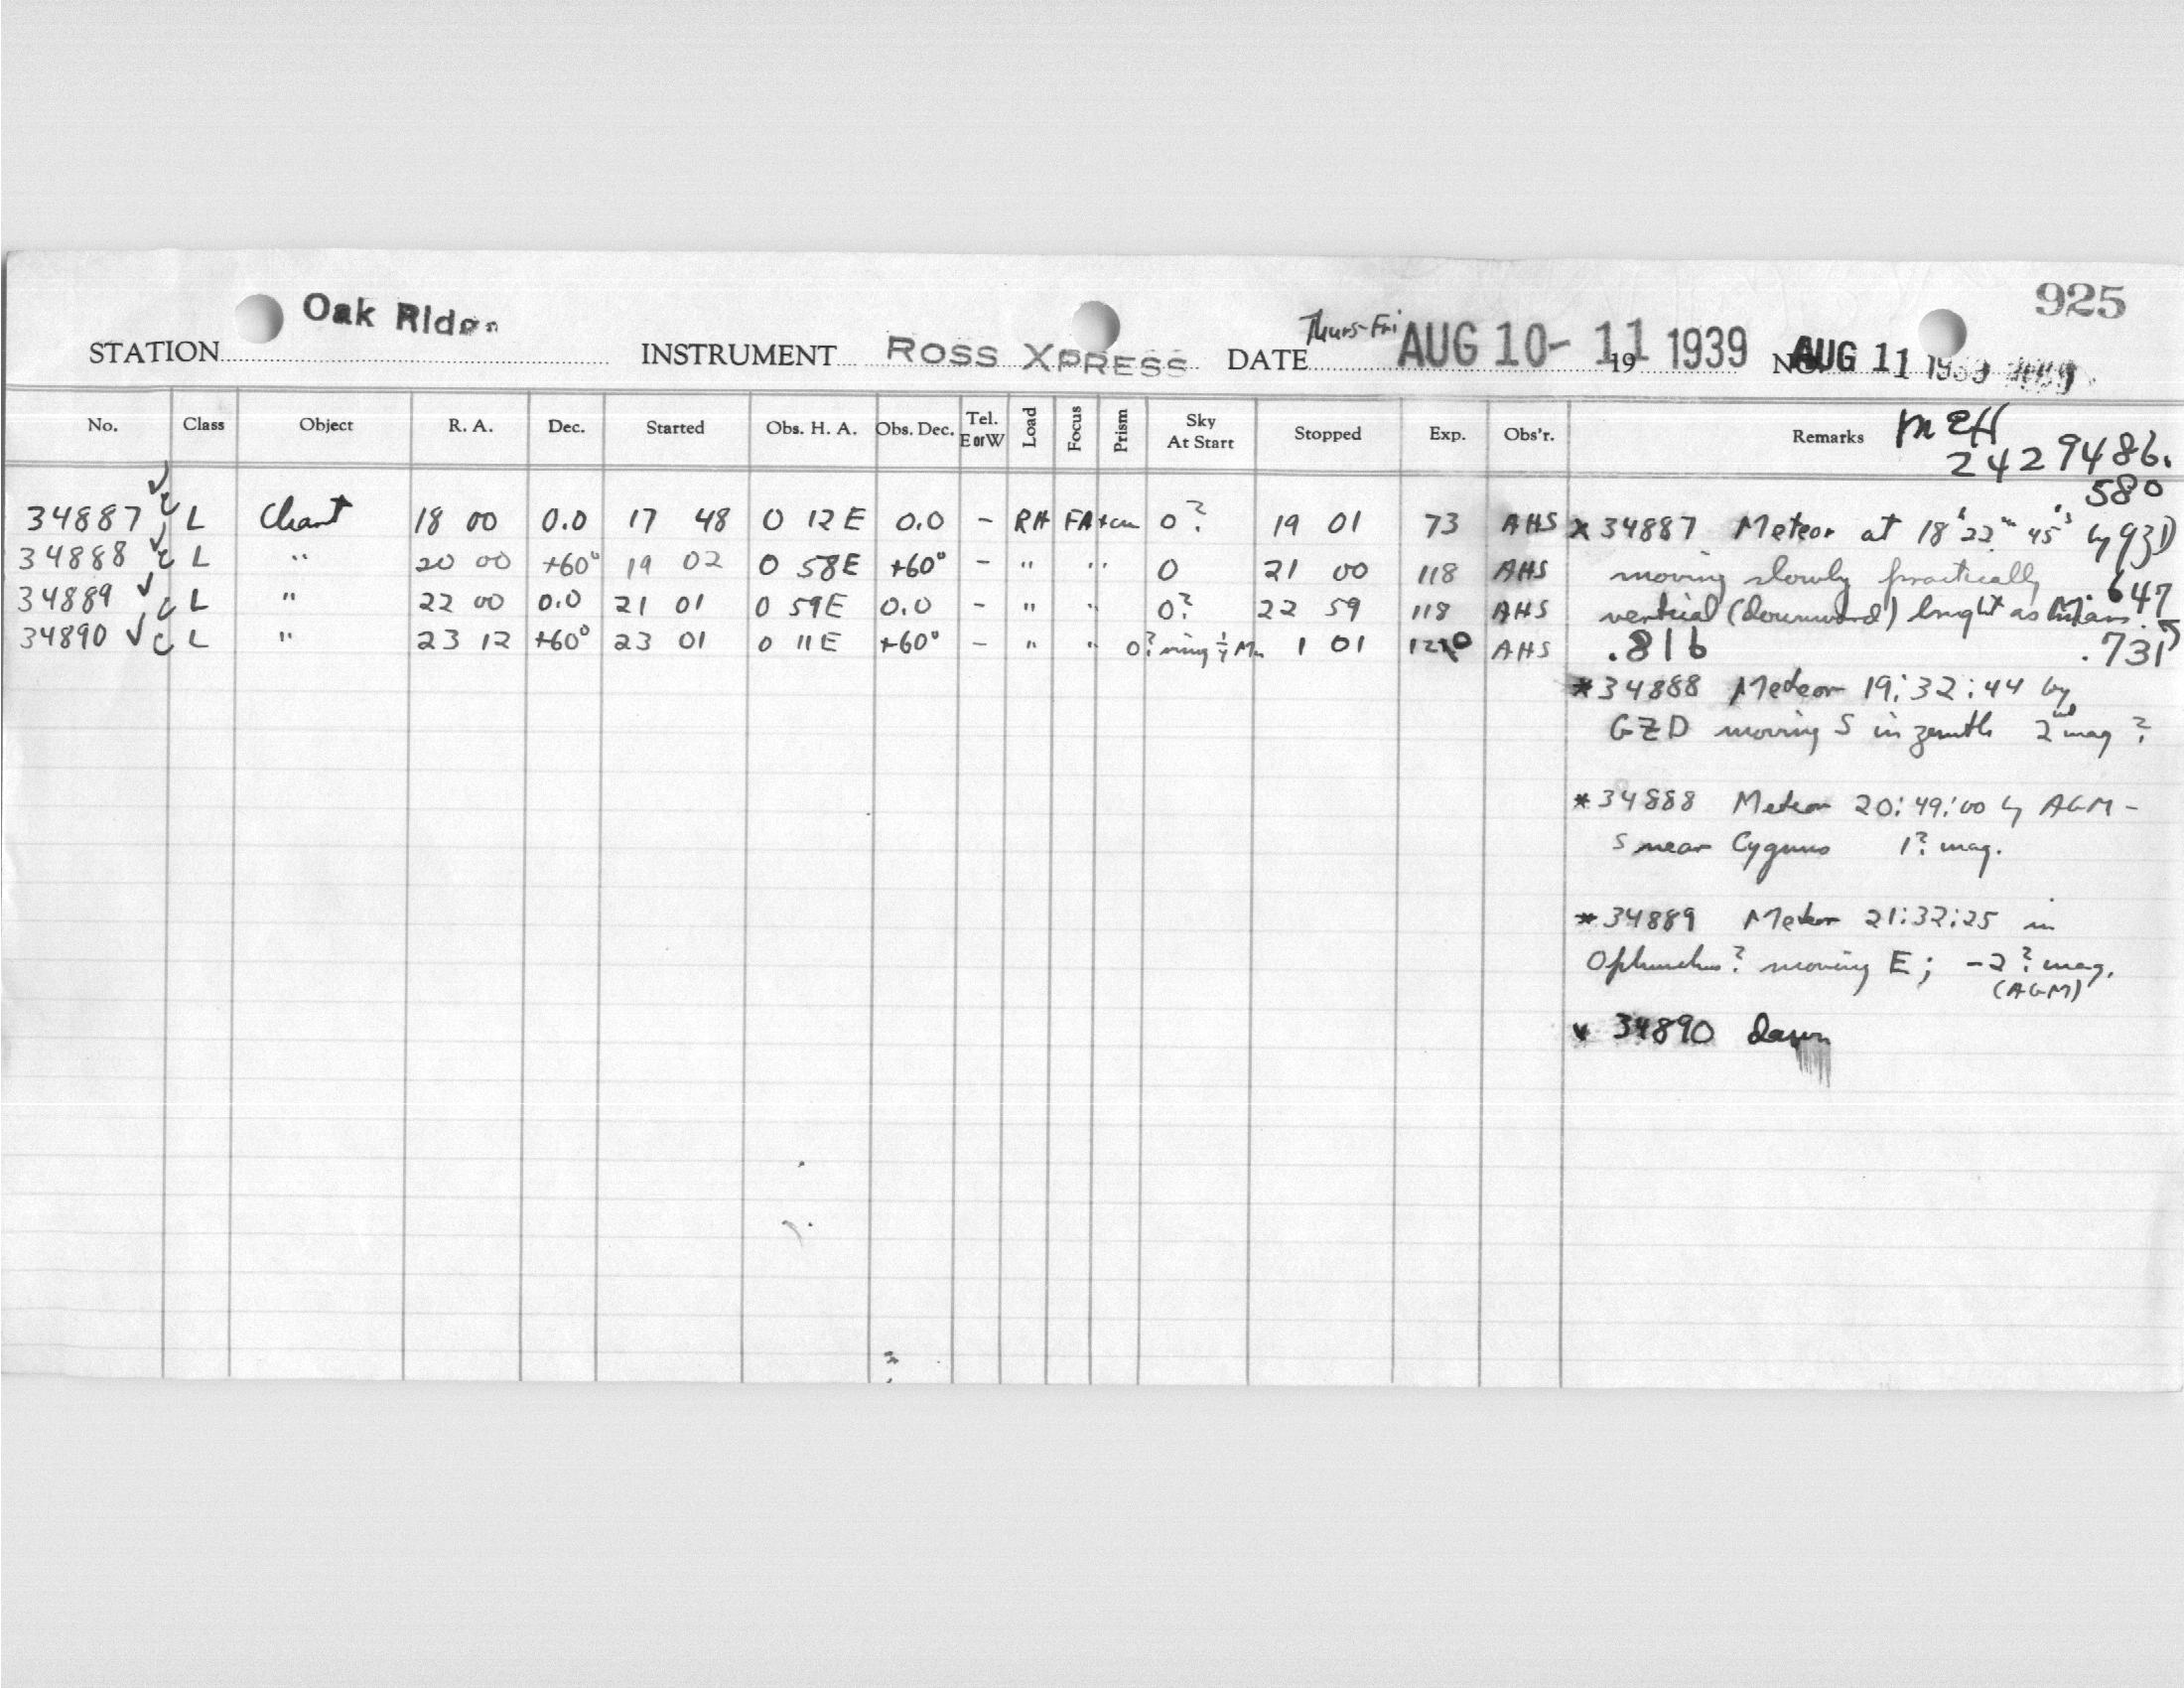 925
STATION Oak Ridge INSTRUMENT ROSS XPRESS DATE Thurs-Fri AUG 10- 11 19 1939 NO. AUG 11 1939
No. Class Object R. A. Dec. Started Obs. H. A. Obs. Dec. Tel. E or W Load Focus Prism Sky At Start Stopped Exp. Obs'r. Remarks MEH
2429486.
580
34887 ✓ c L Chart 18 00 0.0 17 48 0 12 E 0.0 - RH FA 0? 19 01 73 AHS
34888 ✓ c L " 20 00 +60° 19 02 0 58E +60° - " " 0 21 00 118 AHS
34889 ✓ c L " 22 00 0.0 21 01 0 59E 0.0 - " " 0? 22 59 118 AHS
34890 ✓ c L " 23 12 +60° 23 01 0 11E +60° - " " 0? 1 01 120 AHS
x 34887 Meteor at 18h 22m 45s by GZD
moving slowly practically
.647
vertical (downward) bright as
.816 .731
*34888 Meteor 19:32:44 by
GZD moving S in zenith 2nd mag ?
*34888 Meteor 20:49:00 by AGM -
S near Cygnus 1? mag.
*34889 Meteor 21:32:25 in
Ophiuchus? moving E; -2? mag.
(AGM)
34890 dawn